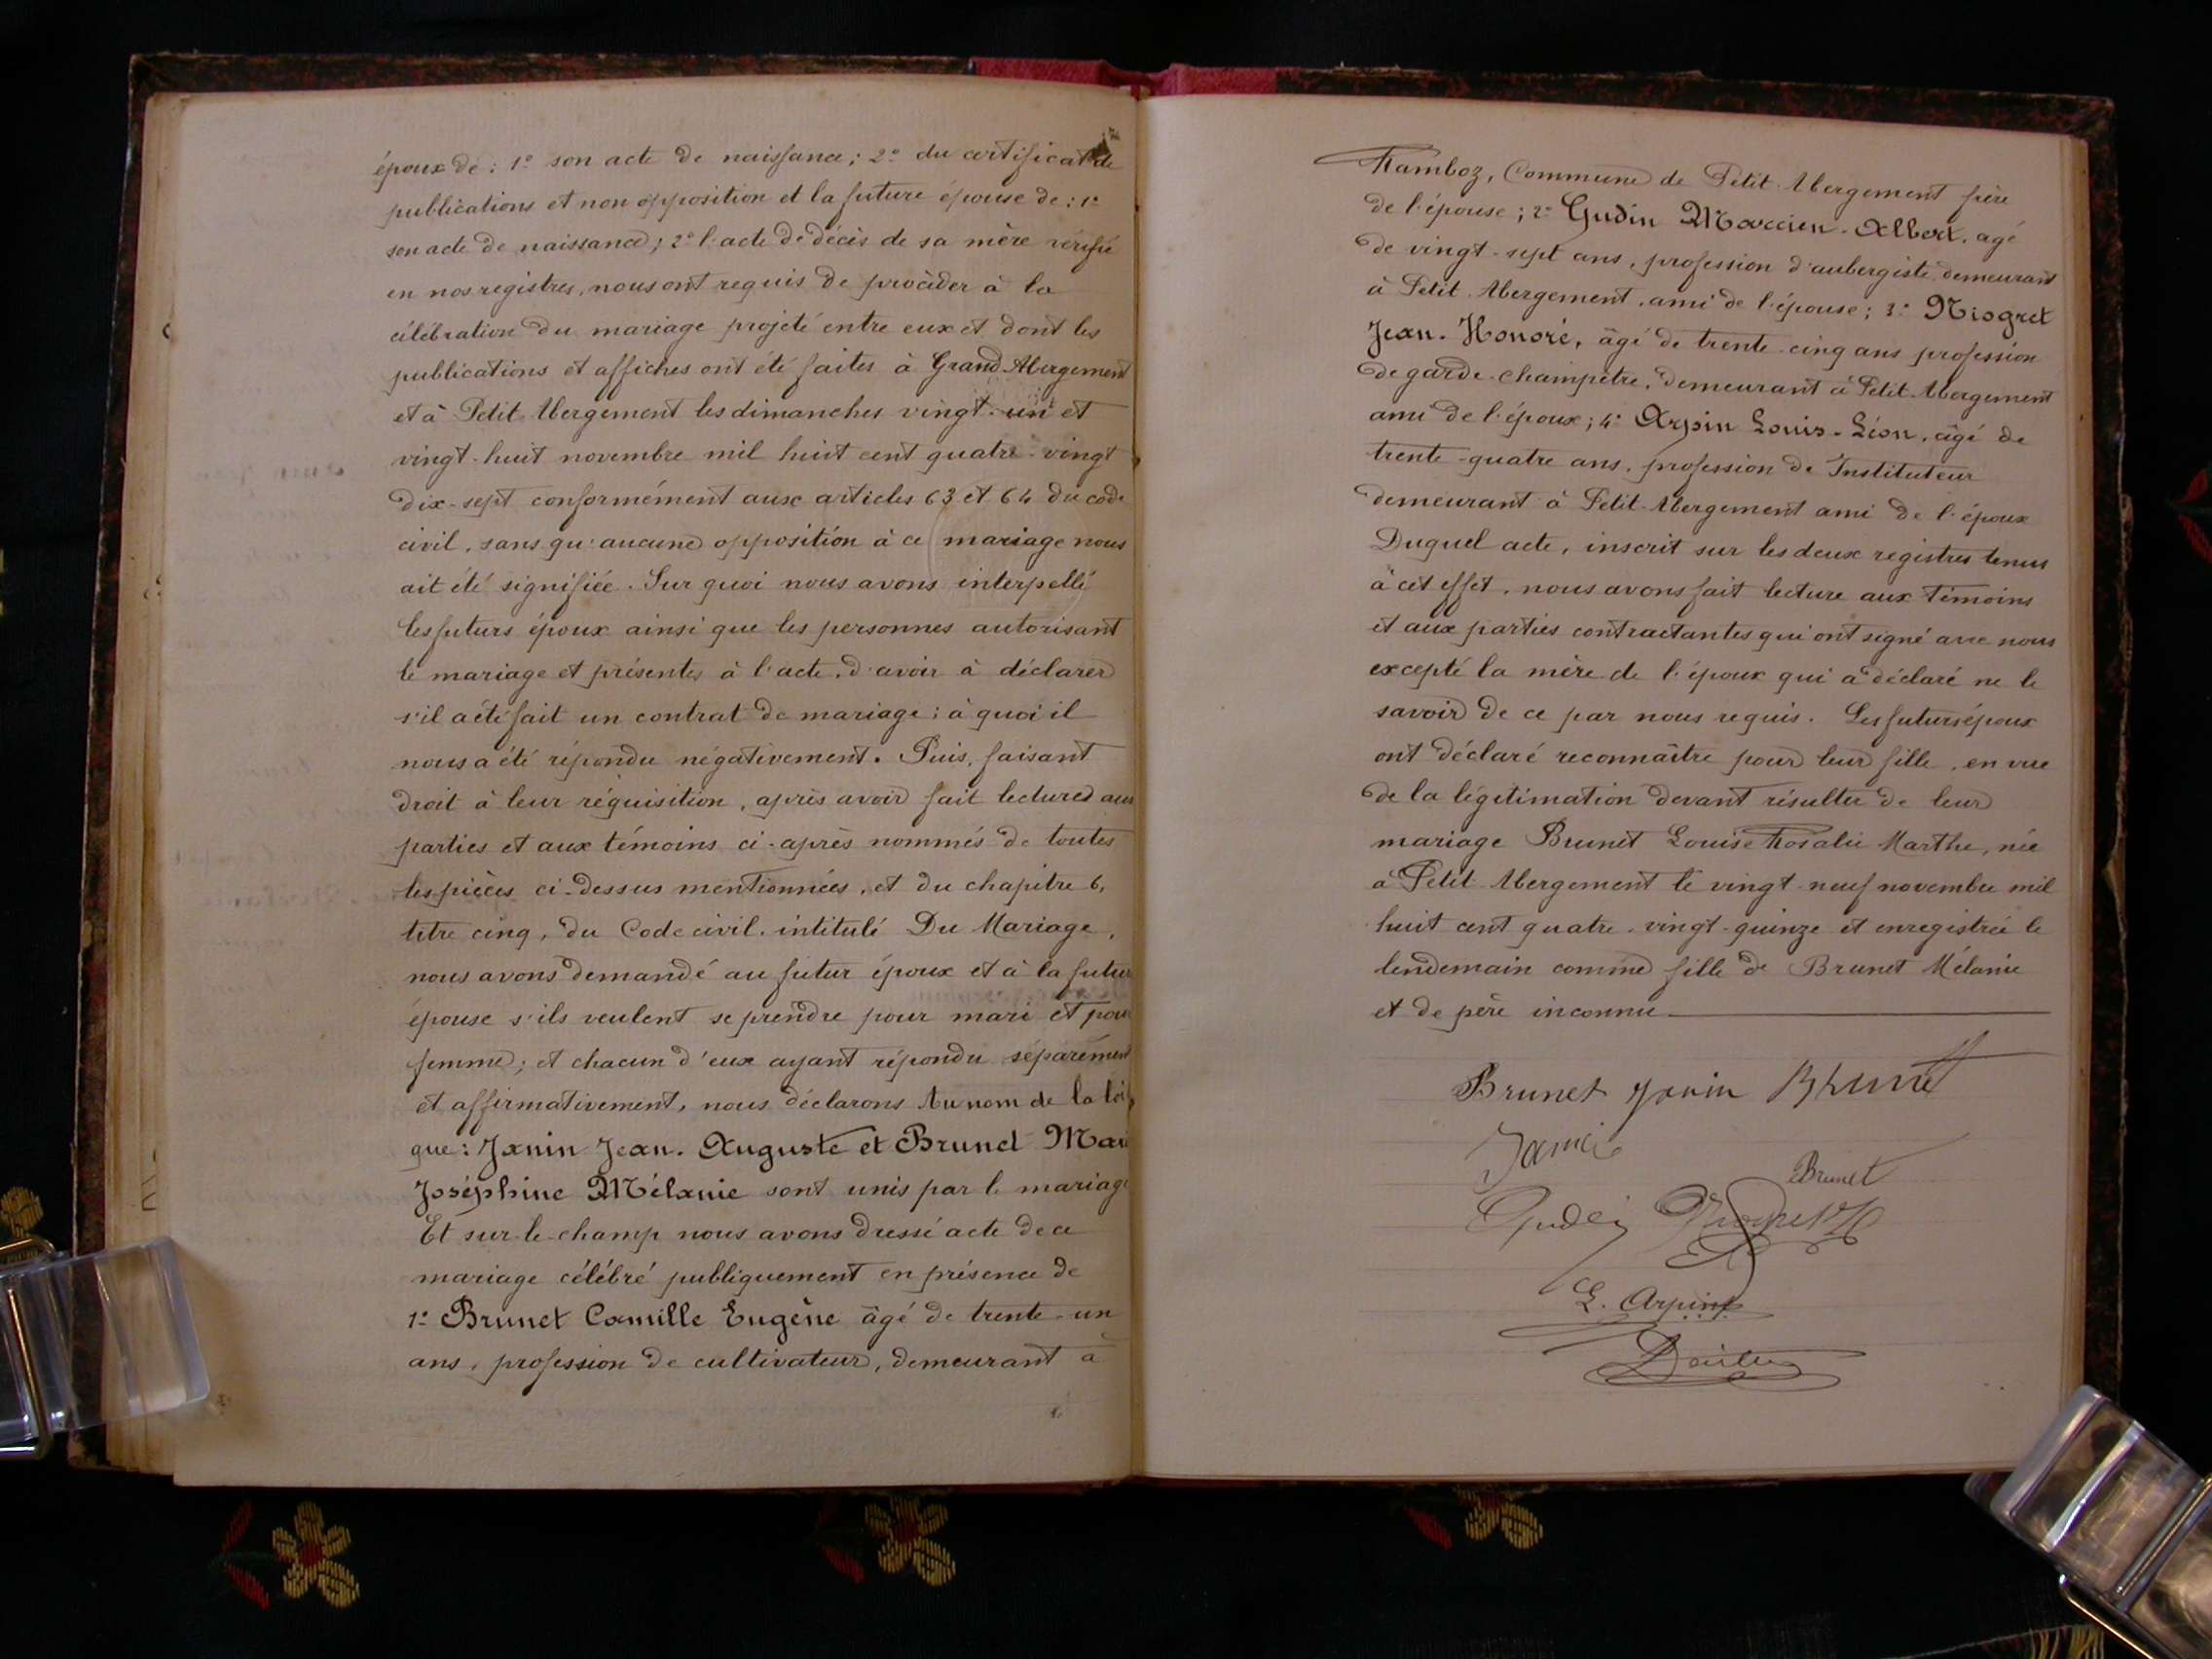 époux de : 1º son acte de naissance ; 2º du certificat de
publications et non opposition et la future épouse de : 1º
son acte de naissance ; 2º l'acte de décès de sa mère vérifié
en nos registres, nous ont requis de procéder à la
célébration du mariage projeté entre eux et dont les
publications et affiches ont été faites à Grand Abergement
et à Petit Abergement les dimanches vingt-un et
vingt-huit novembre mil huit cent quatre-vingt
dix-sept conformément aux articles 63 et 64 du code
civil, sans qu'aucune opposition à ce mariage nous
ait été signifiée. Sur quoi nous avons interpellé
les futurs époux ainsi que les personnes autorisant
le mariage et présentes à l'acte, d'avoir à déclarer
s'il a été fait un contrat de mariage ; à quoi il
nous a été répondu négativement. Puis, faisant
droit à leur réquisition, après avoir fait lecture aux
parties et aux témoins ci-après nommés de toutes
les pièces ci-dessus mentionnées, et du chapitre 6,
titre cinq, du Code civil, intitulé Du Mariage,
nous avons demandé au futur époux et à la future
épouse s'ils veulent se prendre pour mari et pour
femme ; et chacun d'eux ayant répondu séparément
et affirmativement, nous déclarons Au nom de la loi,
que : Janin Jean-Auguste et Brunet Marie
Joséphine Mélanie sont unis par le mariage
Et sur-le-champ nous avons dressé acte de ce
mariage célébré publiquement en présence de
1º Brunet Camille Eugène âgé de trente-un
ans, profession de cultivateur, demeurant à
Ramboz, Commune de Petit-Abergement frère
de l'épouse ; 2º Gudin Marcien-Albert, agé
de vingt-sept ans, profession d'aubergiste, demeurant
à Petit-Abergement, ami de l'épouse ; 3º Niogret
Jean-Honoré, âgé de trente-cinq ans profession
de garde-champêtre, demeurant à Petit-Abergement
ami de l'époux ; 4º Arpin Louis-Léon, âgé de
trente-quatre ans, profession de Instituteur
demeurant à Petit-Abergement ami de l'époux
Duquel acte, inscrit sur les deux registres tenus
à cet effet, nous avons fait lecture aux témoins
et aux parties contractantes qui ont signé avec nous
excepté la mère de l'époux qui a déclaré ne le
savoir de ce par nous requis. Les futurs époux
ont déclaré reconnaître pour leur fille, en vue
de la légitimation devant résulter de leur
mariage Brunet Louise Rosalie Marthe, née
à Petit-Abergement le vingt-neuf novembre mil
huit cent quatre-vingt-quinze et enregistrée le
lendemain comme fille de Brunet Mélanie
et de père inconnu
Brunet Janin Brunet
Janin
Brunet
Gudin Niogret H
L. Arpin